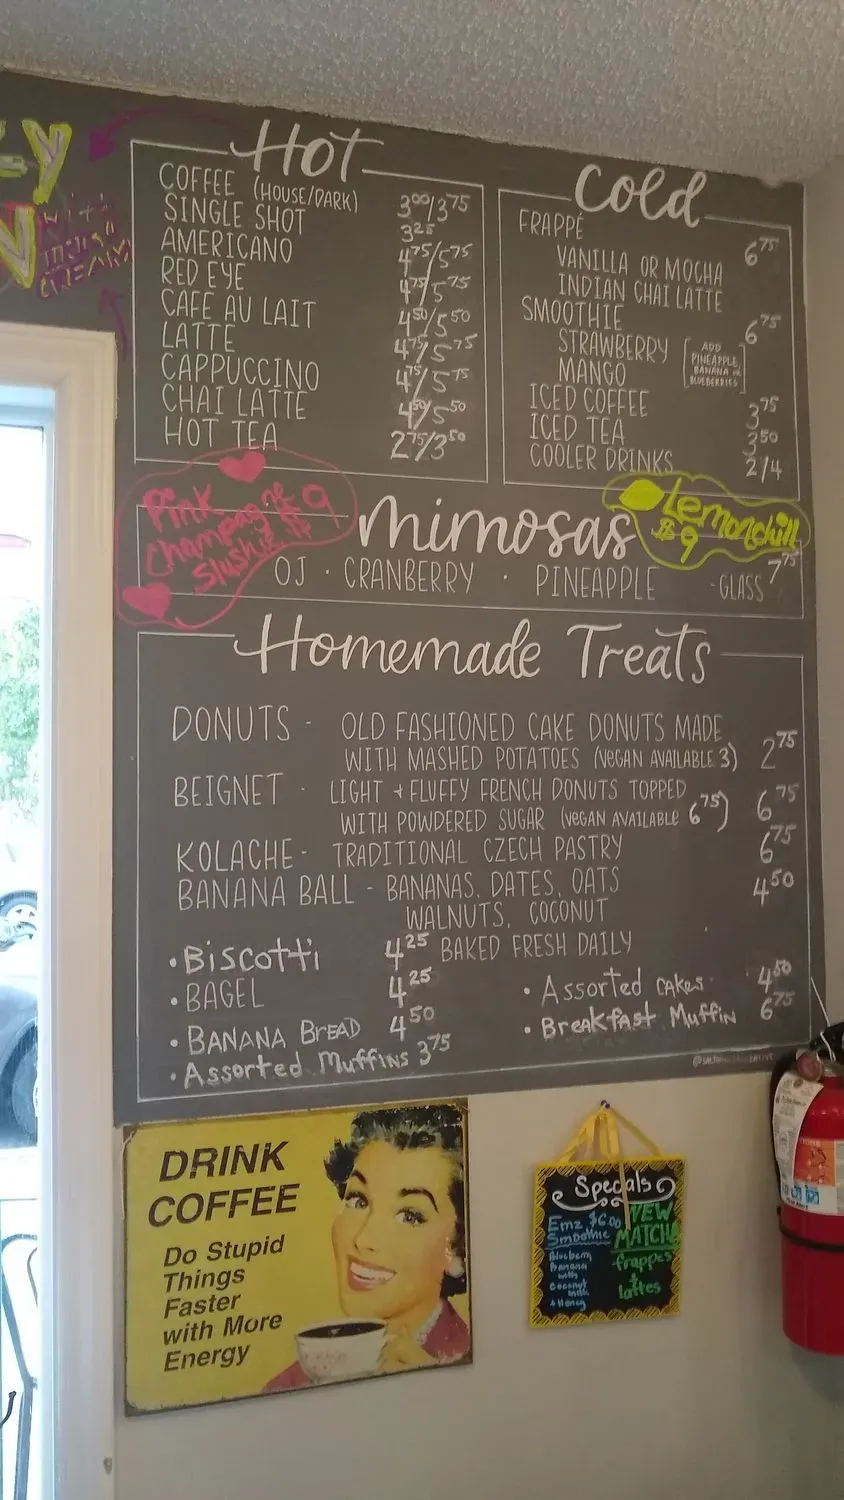 Hot
COFFEE (HOUSE/DARK) 3.00/3.75
SINGLE SHOT 3.25
AMERICANO 4.75/5.75
RED EYE 4.75/5.75
CAFE AU LAIT 4.50/5.50
LATTE 4.75/5.75
CAPPUCCINO 4.75/5.75
CHAI LATTE 4.50/5.50
HOT TEA 2.75/3.50
Cold
FRAPPÉ 6.75
VANILLA OR MOCHA
INDIAN CHAI LATTE
SMOOTHIE 6.75
STRAWBERRY
MANGO
[ADD
PINEAPPLE,
BANANA OR
BLUEBERRIES]
ICED COFFEE 3.75
ICED TEA 3.50
COOLER DRINKS 2/4
Pink
Champagne $9
Slushie
mimosas
Lemonchill
$9
OJ · CRANBERRY · PINEAPPLE - GLASS 7.75
Homemade Treats
DONUTS - OLD FASHIONED CAKE DONUTS MADE
WITH MASHED POTATOES (VEGAN AVAILABLE 3) 2.75
BEIGNET - LIGHT + FLUFFY FRENCH DONUTS TOPPED
WITH POWDERED SUGAR (VEGAN AVAILABLE 6.75) 6.75
KOLACHE - TRADITIONAL CZECH PASTRY 6.75
BANANA BALL - BANANAS, DATES, OATS 4.50
WALNUTS, COCONUT
BAKED FRESH DAILY
• Biscotti 4.25
• BAGEL 4.25
• BANANA BREAD 4.50
• Assorted Muffins 3.75
• Assorted cakes 4.50
• Breakfast Muffin 6.75
DRINK
COFFEE
Do Stupid
Things
Faster
with More
Energy
Specials
Emz $6.00
Smoothie
Blueberry
Banana
with
coconut
milk
+ Honey
NEW
MATCHA
frappes
+
lattes